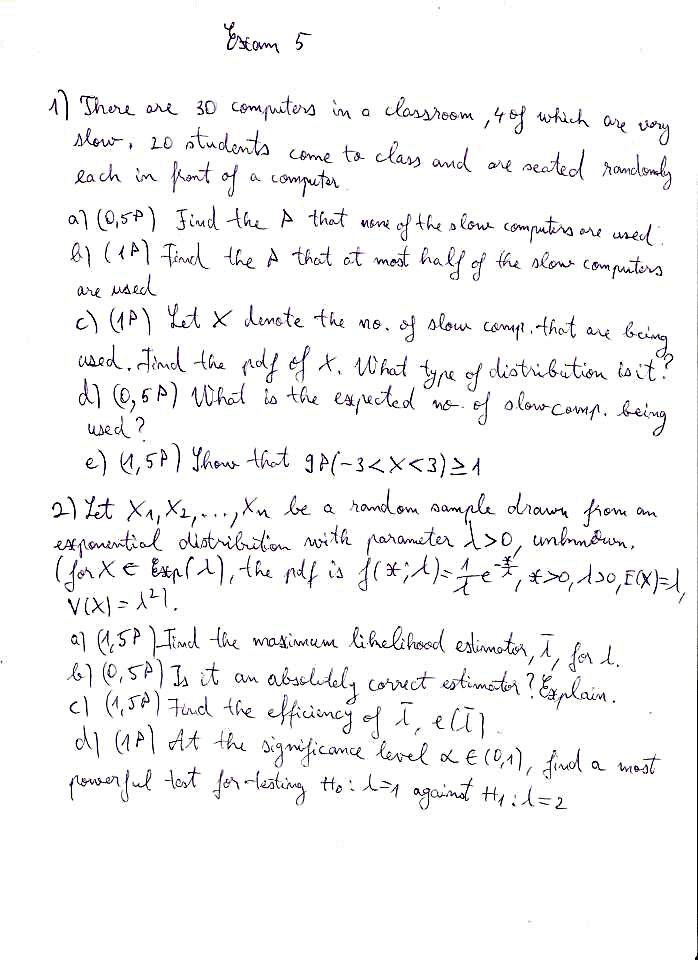 Exam 5
1) There are 30 computers in a classroom, 4 of which are very
slow. 20 students come to class and are seated randomly
each in front of a computer.
a) (0,5P) Find the P that none of the slow computers are used.
b) (1P) Find the P that at most half of the slow computers
are used
c) (1P) Let X denote the no. of slow comp. that are being
used. Find the pdf of X. What type of distribution is it?
d) (0,5P) What is the expected no. of slow comp. being
used?
e) (1,5P) Show that 9P(-3<X<3)≥1
2) Let X₁, X₂, ..., Xn be a random sample drawn from an
exponential distribution with parameter λ>0, unknown.
(for X ∈ Exp(λ), the pdf is f(x;λ)=1/λ e^(-x/λ), x>0, λ>0, E(X)=λ,
V(X)=λ²).
a) (1,5P) Find the maximum likelihood estimator, λ̄, for λ.
b) (0,5P) Is it an absolutely correct estimator? Explain.
c) (1,5P) Find the efficiency of λ̄, e(λ̄).
d) (1P) At the significance level α ∈ (0,1), find a most
powerful test for testing H₀: λ=1 against H₁: λ=2